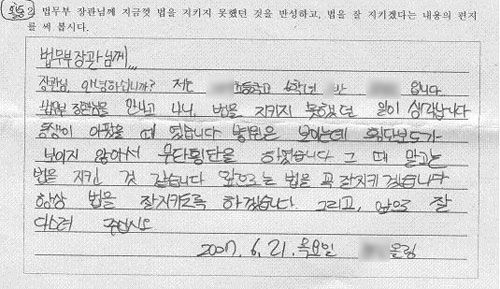 2 법무부 장관님께 지금껏 법을 지키지 못했던 것을 반성하고, 법을 잘 지키겠다는 내용의 편지
를 써 봅시다.
법무부 장관님께...
장관님, 안녕하십니까? 저는 초등학교 학년 반 입니다
법무부 장관님을 만나고 나니, 법을 지키지 못했던 일이 생각납니다
동생이 아팠을 때 였습니다 병원은 보이는데 횡단보도가
보이지 않아서 무단횡단을 하였습니다 그 때 말고는
법을 지킨 것 같습니다 앞으로는 법을 꼭 잘지키 겠습니다
항상 법을 잘지키도록 하겠습니다. 그리고, 앞으로 잘
다스려 주십시오
2007. 6. 21. 목요일 올림